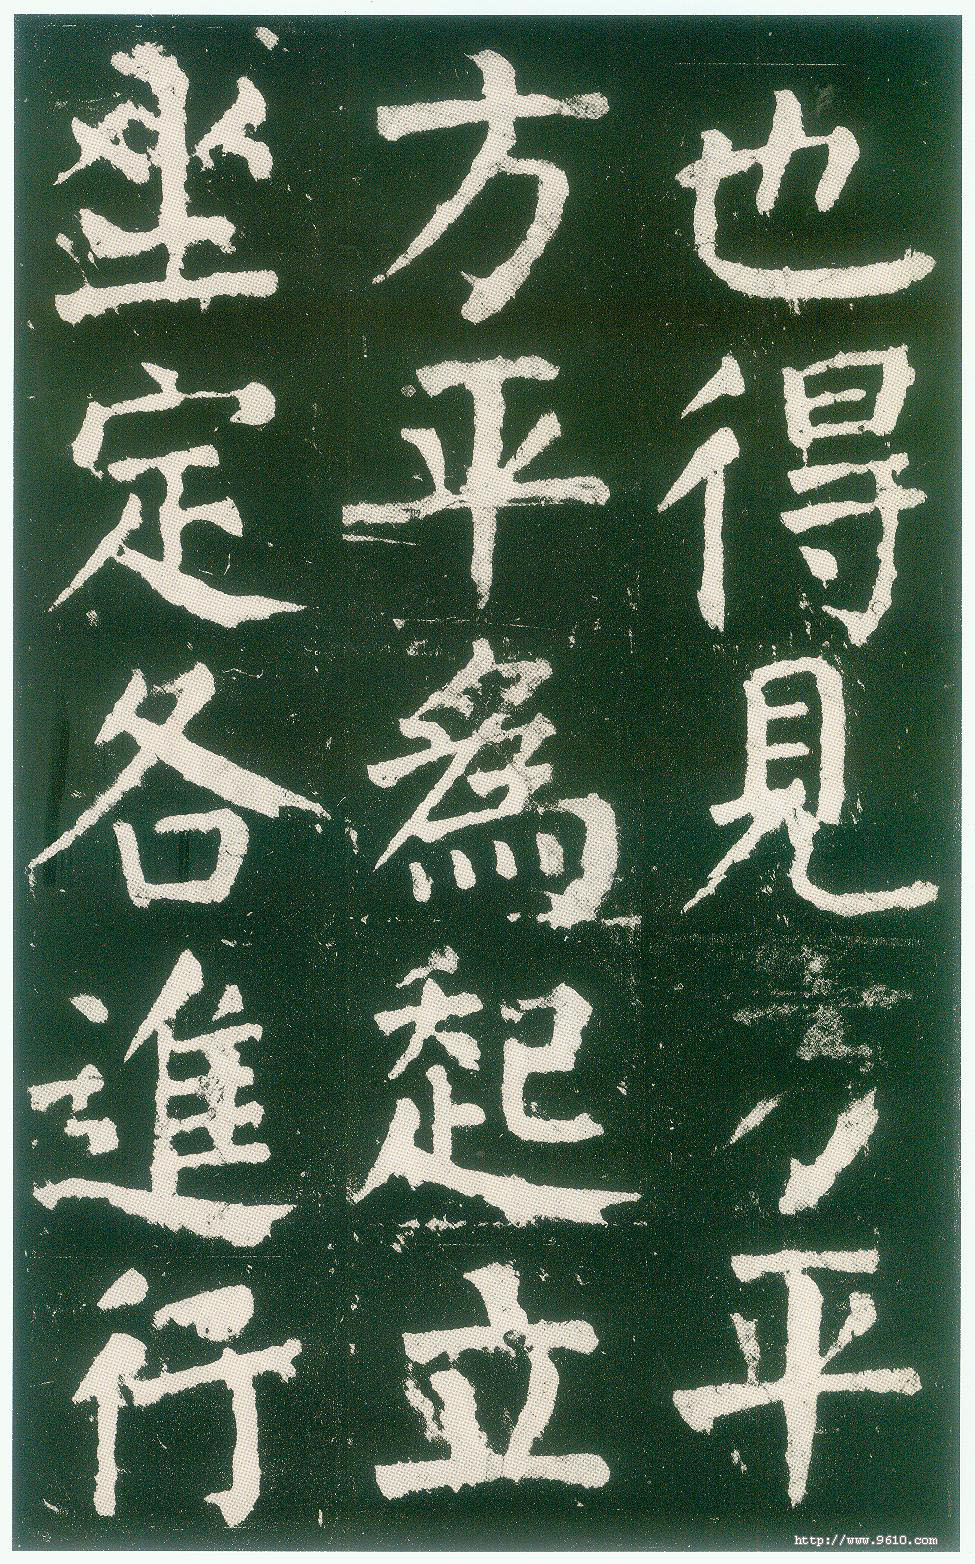 也得見方平
方平為起立
坐定各進行
http://www.9610.com